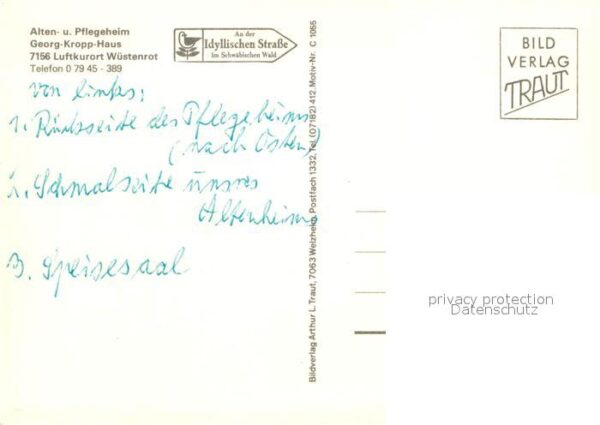 Alten- u. Pflegeheim
Georg-Kropp-Haus
7156 Luftkurort Wüstenrot
Telefon 0 79 45 - 389
An der
Idyllischen Straße
im Schwäbischen Wald
von links:
1. Rückseite des Pflegeheims
(nach Osten)
2. Schmalseite unsres
Altenheims
3. Speisesaal
Bildverlag Arthur L. Traut, 7063 Welzheim, Postfach 1332, Tel. (07182) 412, Motiv-Nr. C 1055
BILD
VERLAG
TRAUT
privacy protection
Datenschutz